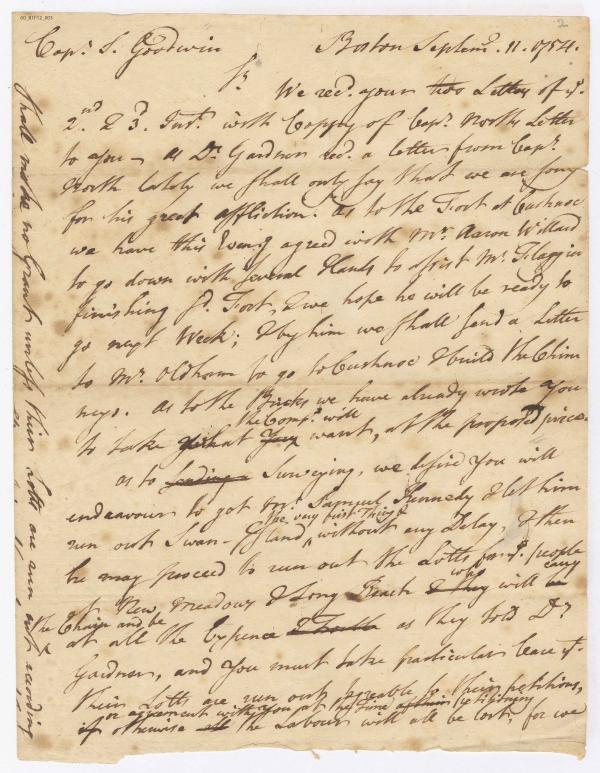 60_81F12_003
2
Capt. S. Goodwin Boston Septemr. 11. 1754.
Sr.
We recd. your two Letters of ye.
2nd. & 3d. Inst. with Coppy of Capt. Norths Letter
to you – as Dr. Gardner recd. a letter from Capt.
North lately we shall only say that we are sorry
for his great affliction. As to the Fort at Cushnoc
we have this Eveng agreed with Mr. Aaron Willard
to go down with several Hands to assist Mr. Flagg in
finishing sd. Fort, & we hope he will be ready to
go next Week; & by him we shall send a Letter
to Mr. Oldham to go to Cushnoc & build the Chim
neys. As to the Bricks we have already wrote you
the Compy. will
to take what they want, at the proposed price.
as to Surveying, we desire you will
endeavour to get Mr. Samuel Kennedy & let him
ye. very first Thing
run out Swan-Island without any Delay, & then
he may proceed to run out the Lotts for ye. people
at New meadows & Long Reach who will carry
the Chain and be
at all the Expence as they told Dr.
Gardner, and You must take particular Care yt.
their Lotts are run out agreable to their petitions,
or agreement with you at the time petitioning
if otherwise the Labour will all be lost, for we
shall make no Grants unless their Lotts are run out according